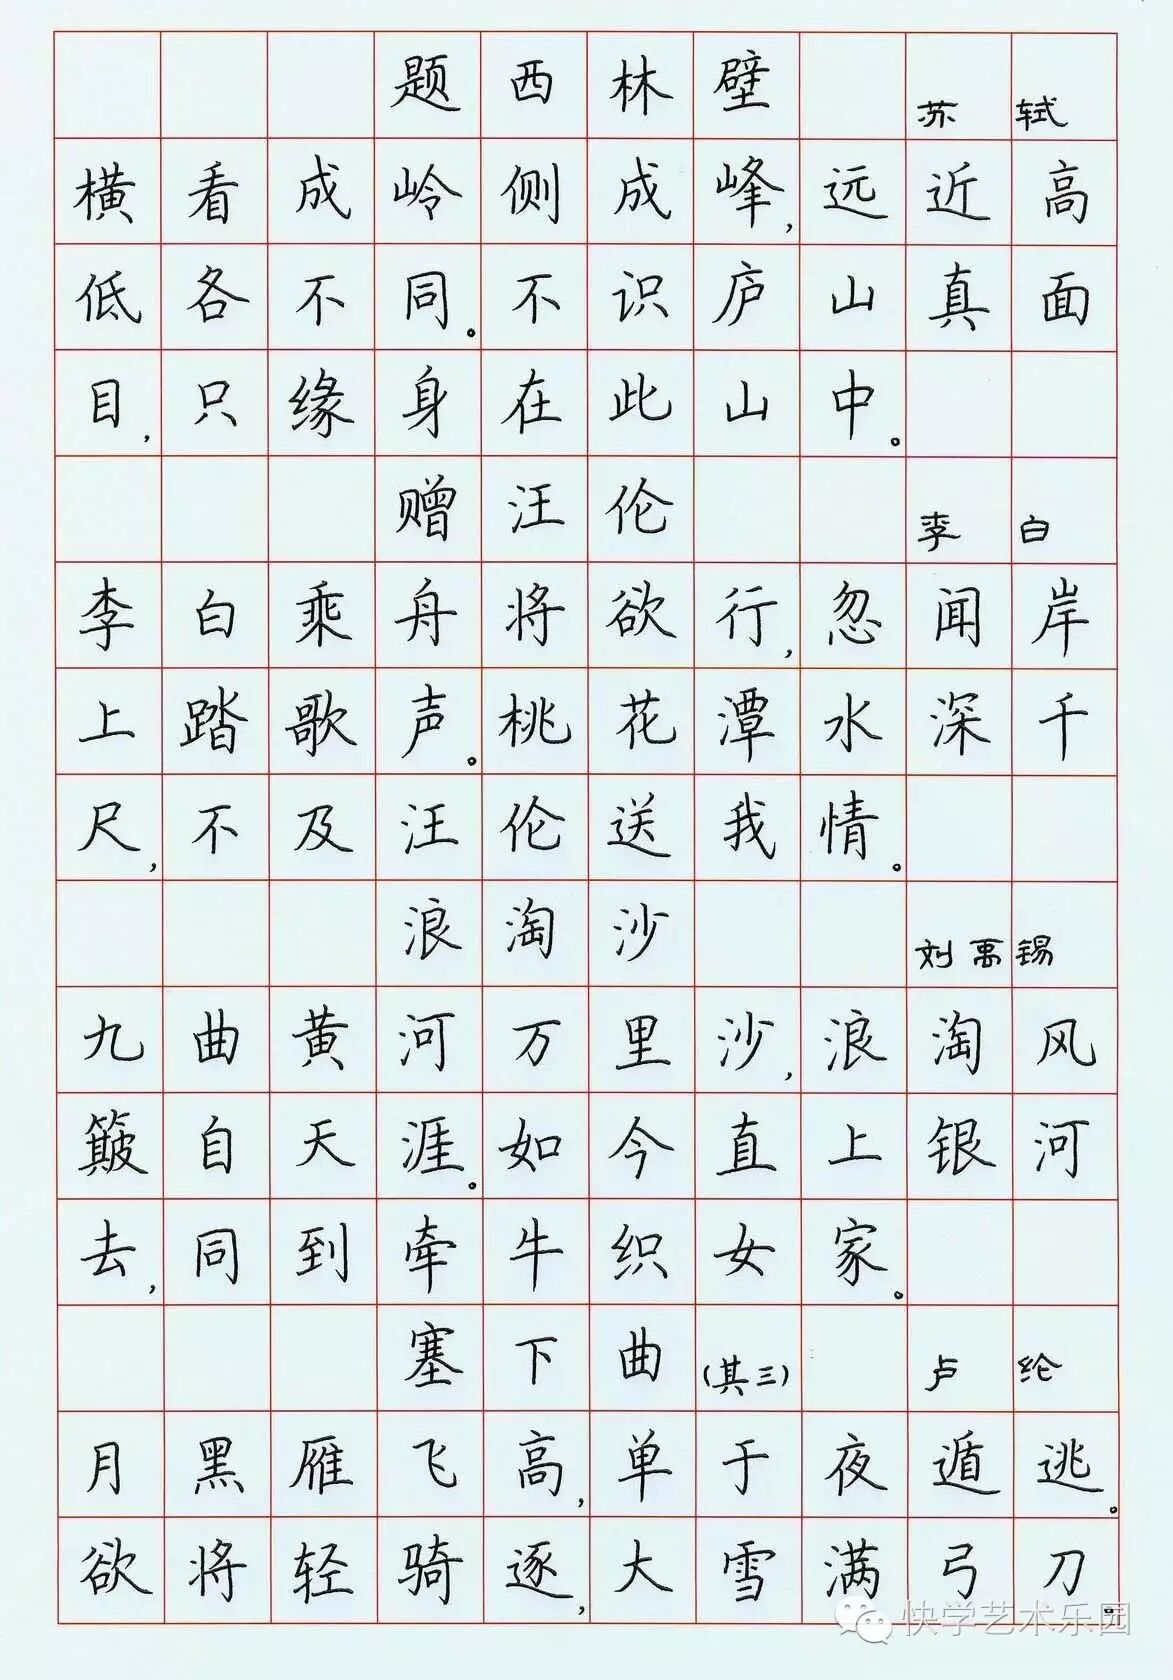 题西林壁 苏轼
横看成岭侧成峰，远近高
低各不同。不识庐山真面
目，只缘身在此山中。
赠汪伦 李白
李白乘舟将欲行，忽闻岸
上踏歌声。桃花潭水深千
尺，不及汪伦送我情。
浪淘沙 刘禹锡
九曲黄河万里沙，浪淘风
簸自天涯。如今直上银河
去，同到牵牛织女家。
塞下曲（其三） 卢纶
月黑雁飞高，单于夜遁逃。
欲将轻骑逐，大雪满弓刀。
快学艺术乐园